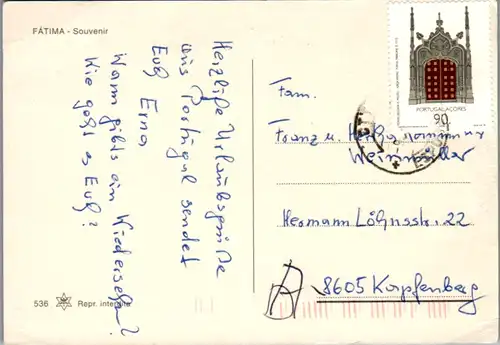 FÁTIMA - Souvenir
Herzliche Urlaubsgrüße
aus Portugal sendet
Euch Erna
Wann gibts ein Wiedersehn?
Wie gehts Euch?
536 Repr. interdite
PORTUGAL AÇORES
90.
Fam.
Franz u.
Weinmüller
Hermann Löhnsstr. 22
A 8605 Kapfenberg